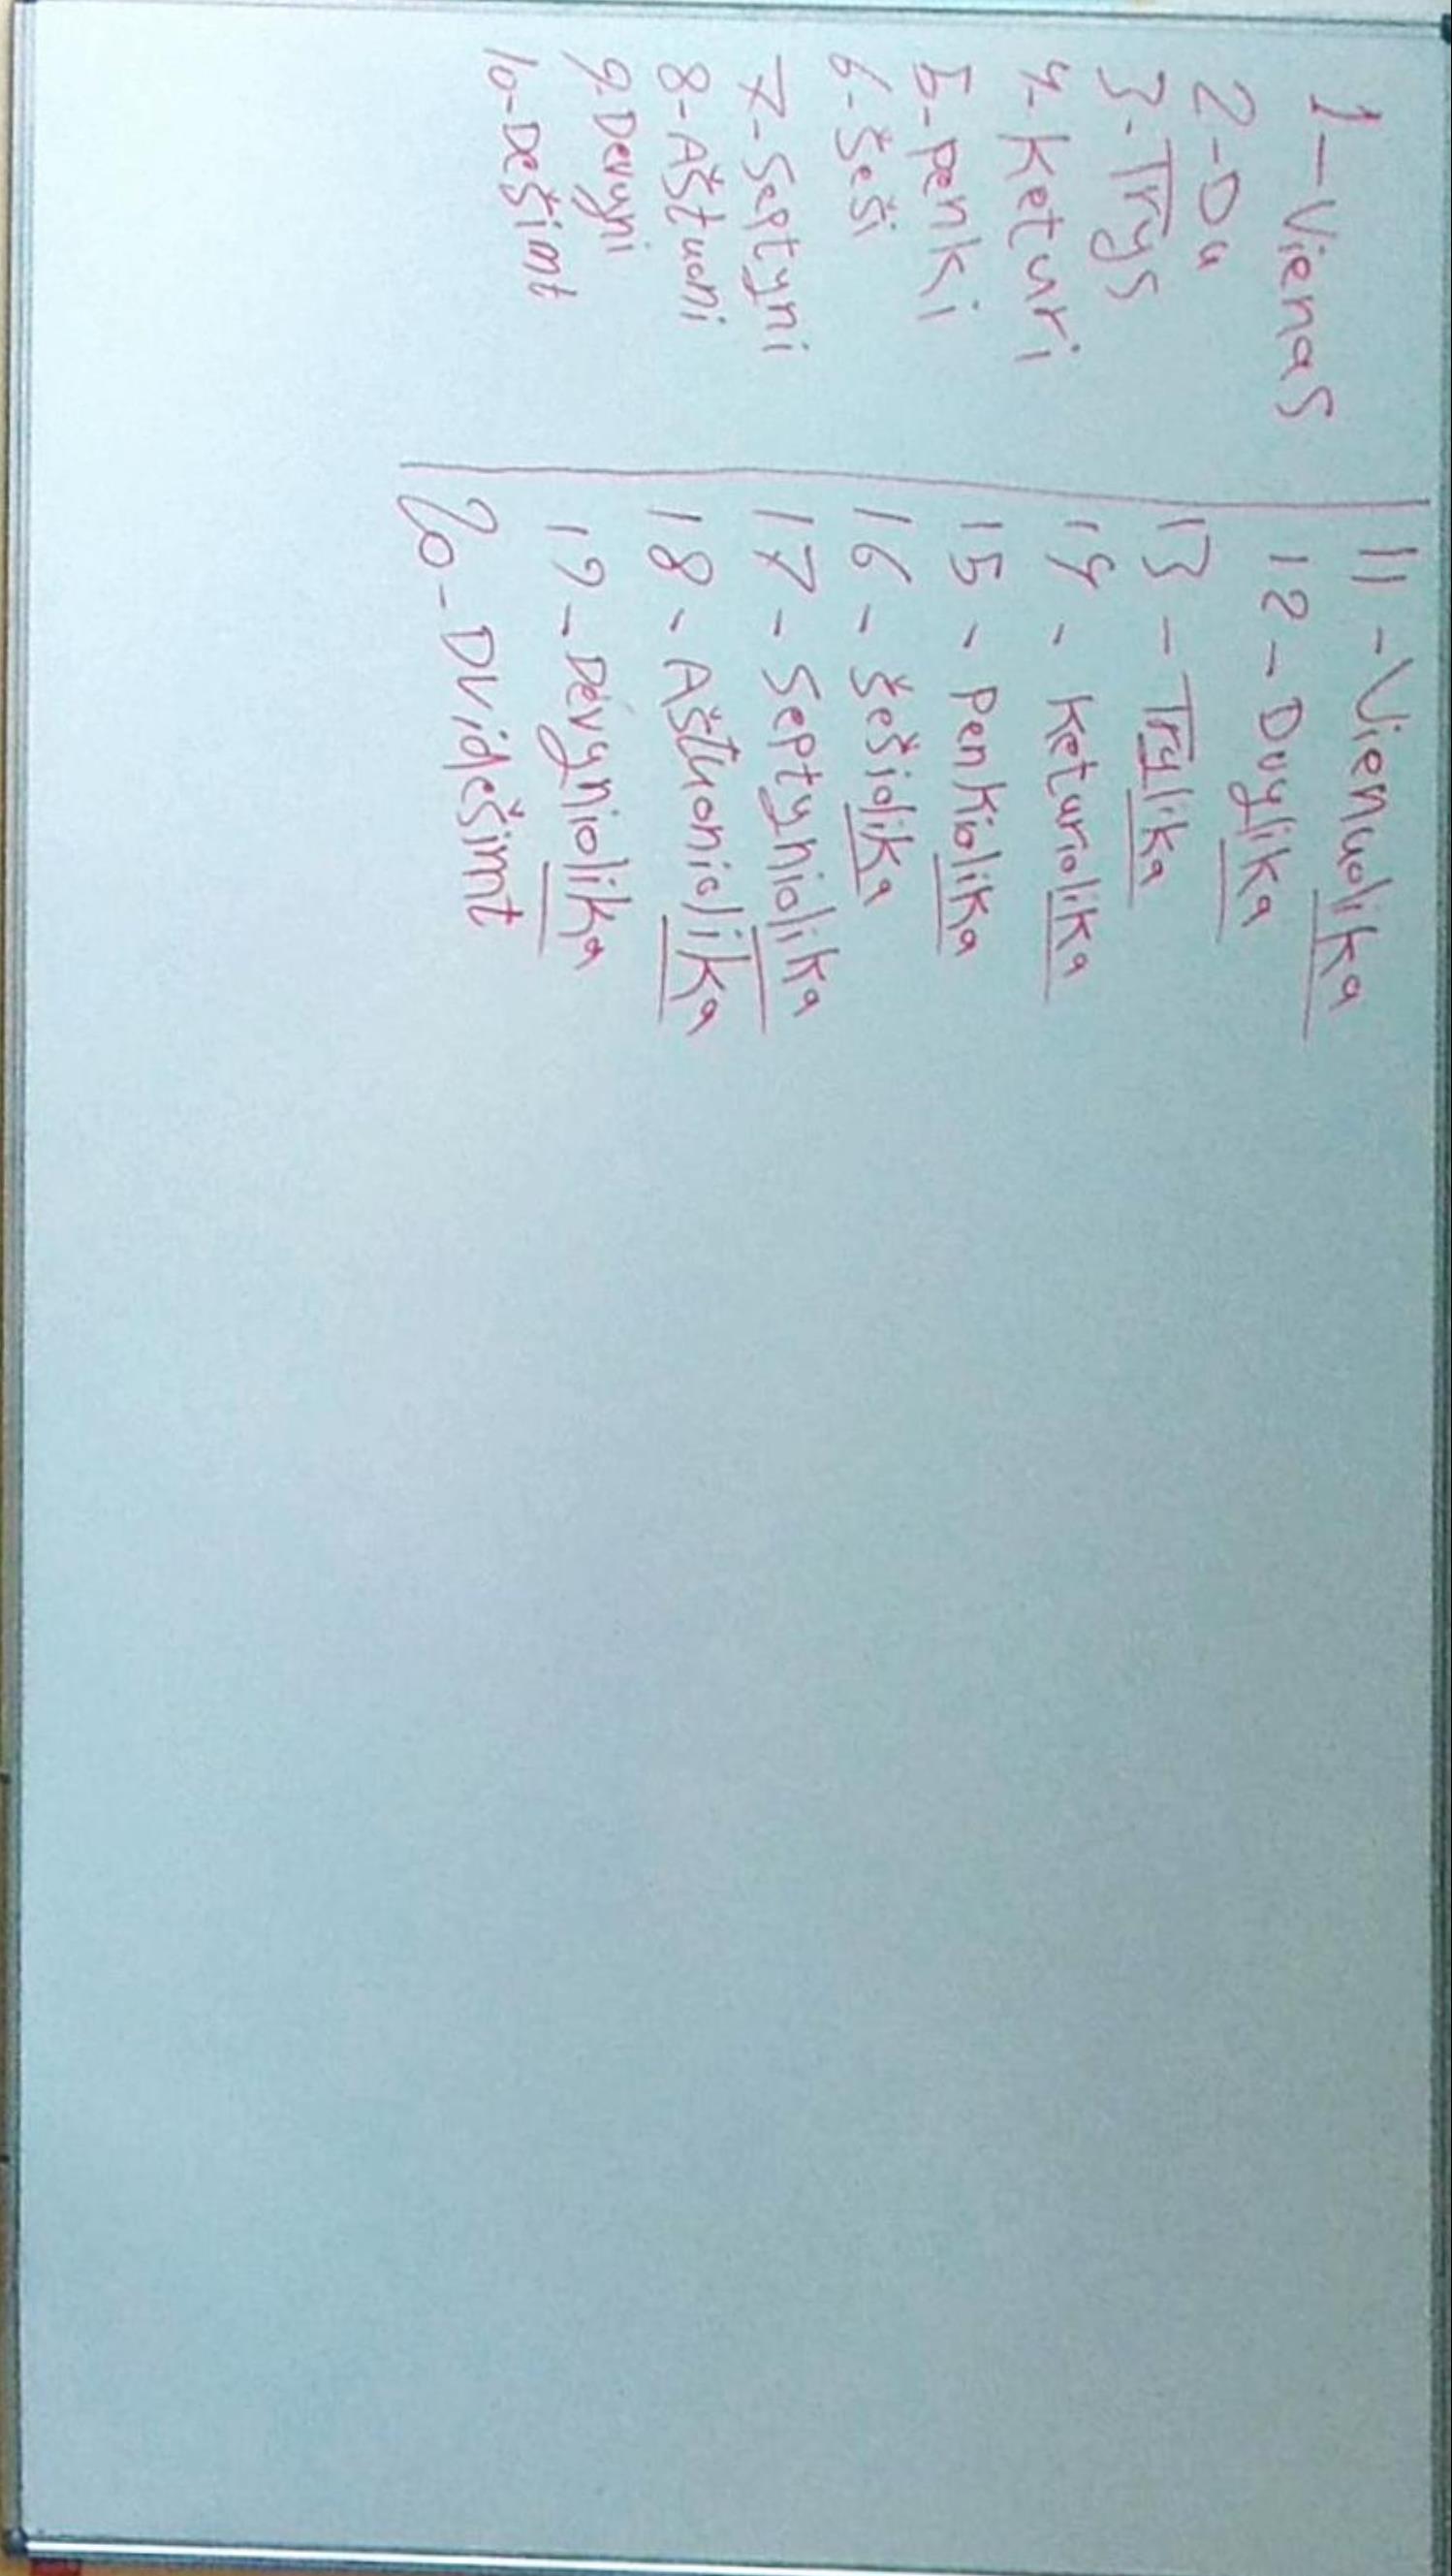 1-Vienas
2-Du
3-Trys
4-keturi
5-penki
6-šeši
7-Septyni
8-Aštuoni
9.Devyni
10-Dešimt
11-Vienuolika
12-Dvylika
13-Trylika
14-keturiolika
15-penkiolika
16-šešiolika
17-Septyniolika
18-Aštuoniolika
19-Devyniolika
20-Dvidešimt